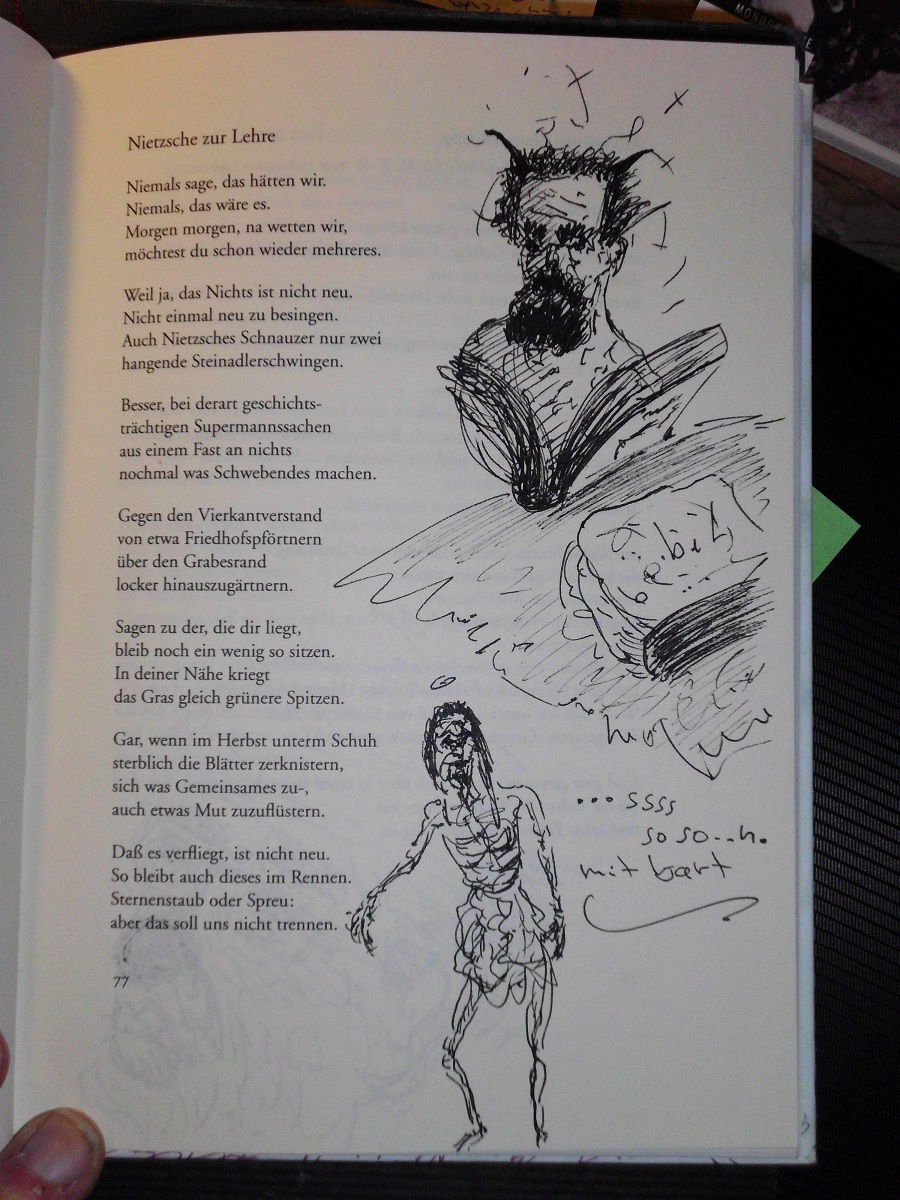 Nietzsche zur Lehre
Niemals sage, das hätten wir.
Niemals, das wäre es.
Morgen morgen, na wetten wir,
möchtest du schon wieder mehreres.
Weil ja, das Nichts ist nicht neu.
Nicht einmal neu zu besingen.
Auch Nietzsches Schnauzer nur zwei
hangende Steinadlerschwingen.
Besser, bei derart geschichts-
trächtigen Supermannssachen
aus einem Fast an nichts
nochmal was Schwebendes machen.
Gegen den Vierkantverstand
von etwa Friedhofspförtnern
über den Grabesrand
locker hinauszugärtnern.
Sagen zu der, die dir liegt,
bleib noch ein wenig so sitzen.
In deiner Nähe kriegt
das Gras gleich grünere Spitzen.
Gar, wenn im Herbst unterm Schuh
sterblich die Blätter zerknistern,
sich was Gemeinsames zu-,
auch etwas Mut zuzuflüstern.
Daß es verfliegt, ist nicht neu.
So bleibt auch dieses im Rennen.
Sternenstaub oder Spreu:
aber das soll uns nicht trennen.
77
... ssss
so so...h.
mit bart